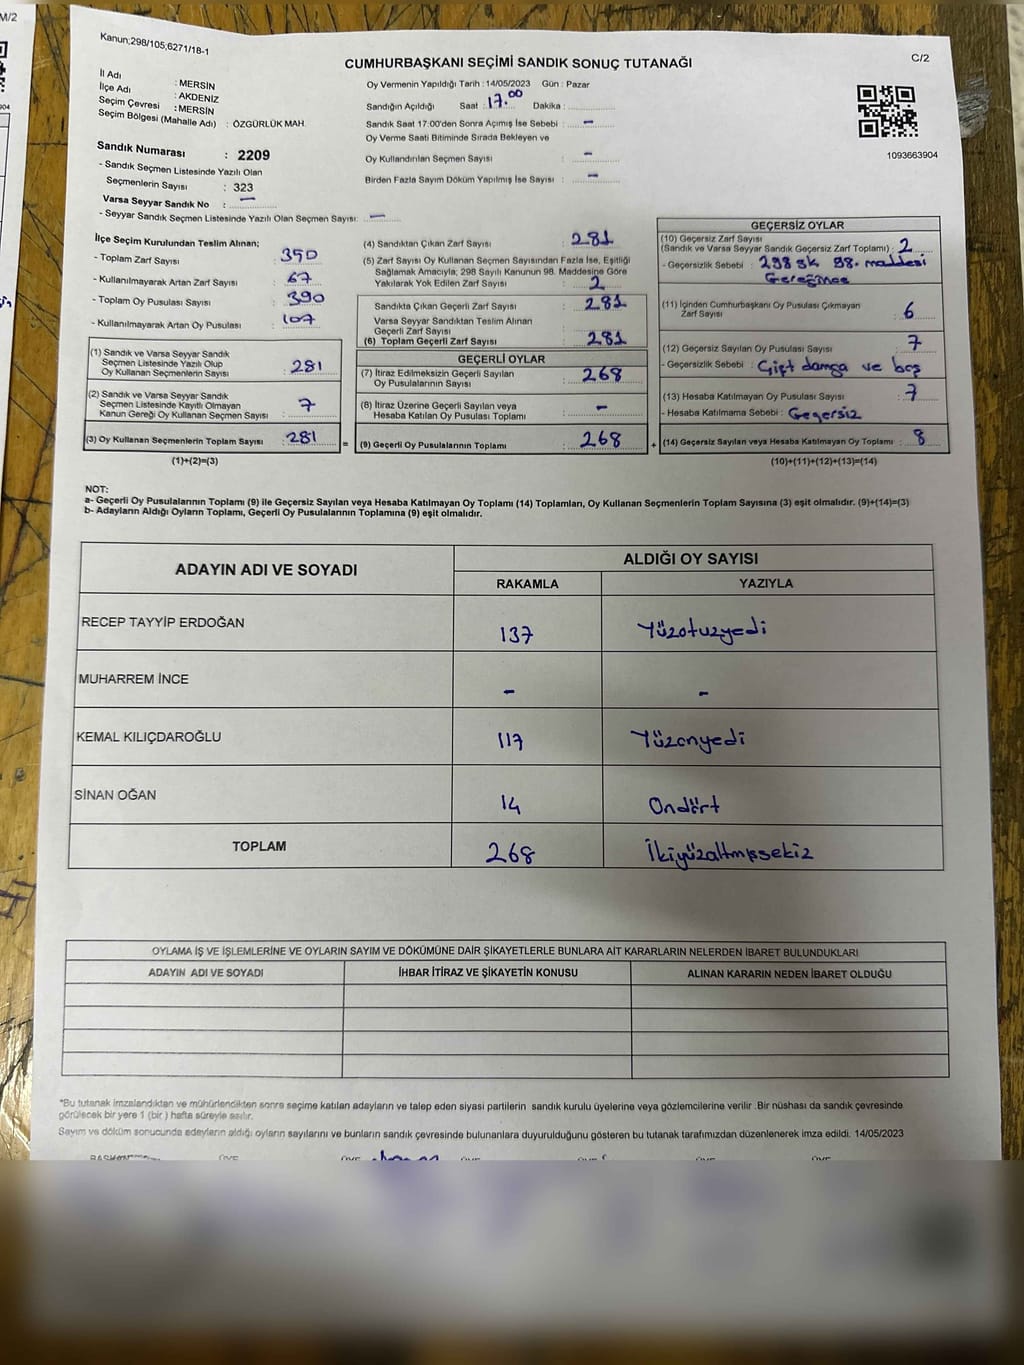 M/2
Kanun;298/105,6271/18-1
C/2
CUMHURBAŞKANI SEÇİMİ SANDIK SONUÇ TUTANAĞI
İl Adı : MERSİN
İlçe Adı : AKDENİZ
Seçim Çevresi : MERSİN
Seçim Bölgesi (Mahalle Adı) : ÖZGÜRLÜK MAH.
Sandık Numarası : 2209
- Sandık Seçmen Listesinde Yazılı Olan
Seçmenlerin Sayısı : 323
Varsa Seyyar Sandık No : -
- Seyyar Sandık Seçmen Listesinde Yazılı Olan Seçmen Sayısı: -
Oy Vermenin Yapıldığı Tarih : 14/05/2023 Gün : Pazar
Sandığın Açıldığı Saat : 17.00 Dakika :
Sandık Saat 17:00'den Sonra Açımış İse Sebebi : -
Oy Verme Saati Bitiminde Sırada Bekleyen ve
Oy Kullandırılan Seçmen Sayısı : -
Birden Fazla Sayım Döküm Yapılmış İse Sayısı : -
1093663904
İlçe Seçim Kurulundan Teslim Alınan;
- Toplam Zarf Sayısı : 350
- Kullanılmayarak Artan Zarf Sayısı : 67
- Toplam Oy Pusulası Sayısı : 390
- Kullanılmayarak Artan Oy Pusulası : 107
(1) Sandık ve Varsa Seyyar Sandık
Seçmen Listesinde Yazılı Olup
Oy Kullanan Seçmenlerin Sayısı : 281
(2) Sandık ve Varsa Seyyar Sandık
Seçmen Listesinde Kayıtlı Olmayan
Kanun Gereği Oy Kullanan Seçmen Sayısı : 7
(3) Oy Kullanan Seçmenlerin Toplam Sayısı : 281 =
(1)+(2)=(3)
(4) Sandıktan Çıkan Zarf Sayısı : 281
(5) Zarf Sayısı Oy Kullanan Seçmen Sayısından Fazla İse, Eşitliği
Sağlamak Amacıyla; 298 Sayılı Kanunun 98. Maddesine Göre
Yakılarak Yok Edilen Zarf Sayısı : 2
Sandıkta Çıkan Geçerli Zarf Sayısı : 281
Varsa Seyyar Sandıktan Teslim Alınan
Geçerli Zarf Sayısı :
(6) Toplam Geçerli Zarf Sayısı : 281
GEÇERLİ OYLAR
(7) İtiraz Edilmeksizin Geçerli Sayılan
Oy Pusulalarının Sayısı : 268
(8) İtiraz Üzerine Geçerli Sayılan veya
Hesaba Katılan Oy Pusulalarının Toplamı : -
(9) Geçerli Oy Pusulalarının Toplamı : 268 +
GEÇERSİZ OYLAR
(10) Geçersiz Zarf Sayısı
(Sandık ve Varsa Seyyar Sandık Geçersiz Zarf Toplamı) : 2
- Geçersizlik Sebebi : 298 sk 98. maddesi
(11) İçinden Cumhurbaşkanı Oy Pusulası Çıkmayan
Zarf Sayısı : 6
(12) Geçersiz Sayılan Oy Pusulası Sayısı : 7
- Geçersizlik Sebebi : Çift damga ve boş
(13) Hesaba Katılmayan Oy Pusulası Sayısı : 7
- Hesaba Katılmama Sebebi : Geçersiz
(14) Geçersiz Sayılan veya Hesaba Katılmayan Oy Toplamı : 8
(10)+(11)+(12)+(13)=(14)
NOT:
a- Geçerli Oy Pusulalarının Toplamı (9) ile Geçersiz Sayılan veya Hesaba Katılmayan Oy Toplamı (14) Toplamları, Oy Kullanan Seçmenlerin Toplam Sayısına (3) eşit olmalıdır. (9)+(14)=(3)
b- Adayların Aldığı Oyların Toplamı, Geçerli Oy Pusulalarının Toplamına (9) eşit olmalıdır.
ADAYIN ADI VE SOYADI
ALDIĞI OY SAYISI
RAKAMLA YAZIYLA
RECEP TAYYİP ERDOĞAN 137 Yüzotuzyedi
MUHARREM İNCE - -
KEMAL KILIÇDAROĞLU 117 Yüzonyedi
SİNAN OĞAN 14 Ondört
TOPLAM 268 İkiyüzaltmışsekiz
OYLAMA İŞ VE İŞLEMLERİNE VE OYLARIN SAYIM VE DÖKÜMÜNE DAİR ŞİKAYETLERLE BUNLARA AİT KARARLARIN NELERDEN İBARET BULUNDUKLARI
ADAYIN ADI VE SOYADI İHBAR İTİRAZ VE ŞİKAYETİN KONUSU ALINAN KARARIN NEDEN İBARET OLDUĞU
*Bu tutanak imzalandıktan ve mühürlendikten sonra seçime katılan adayların ve talep eden siyasi partilerin sandık kurulu üyelerine veya gözlemcilerine verilir. Bir nüshası da sandık çevresinde
görülecek bir yere 1 (bir ) hafta süreyle asılır.
Sayım ve döküm sonucunda adayların aldığı oyların sayılarını ve bunların sandık çevresinde bulunanlara duyurulduğunu gösteren bu tutanak tarafımızdan düzenlenerek imza edildi. 14/05/2023